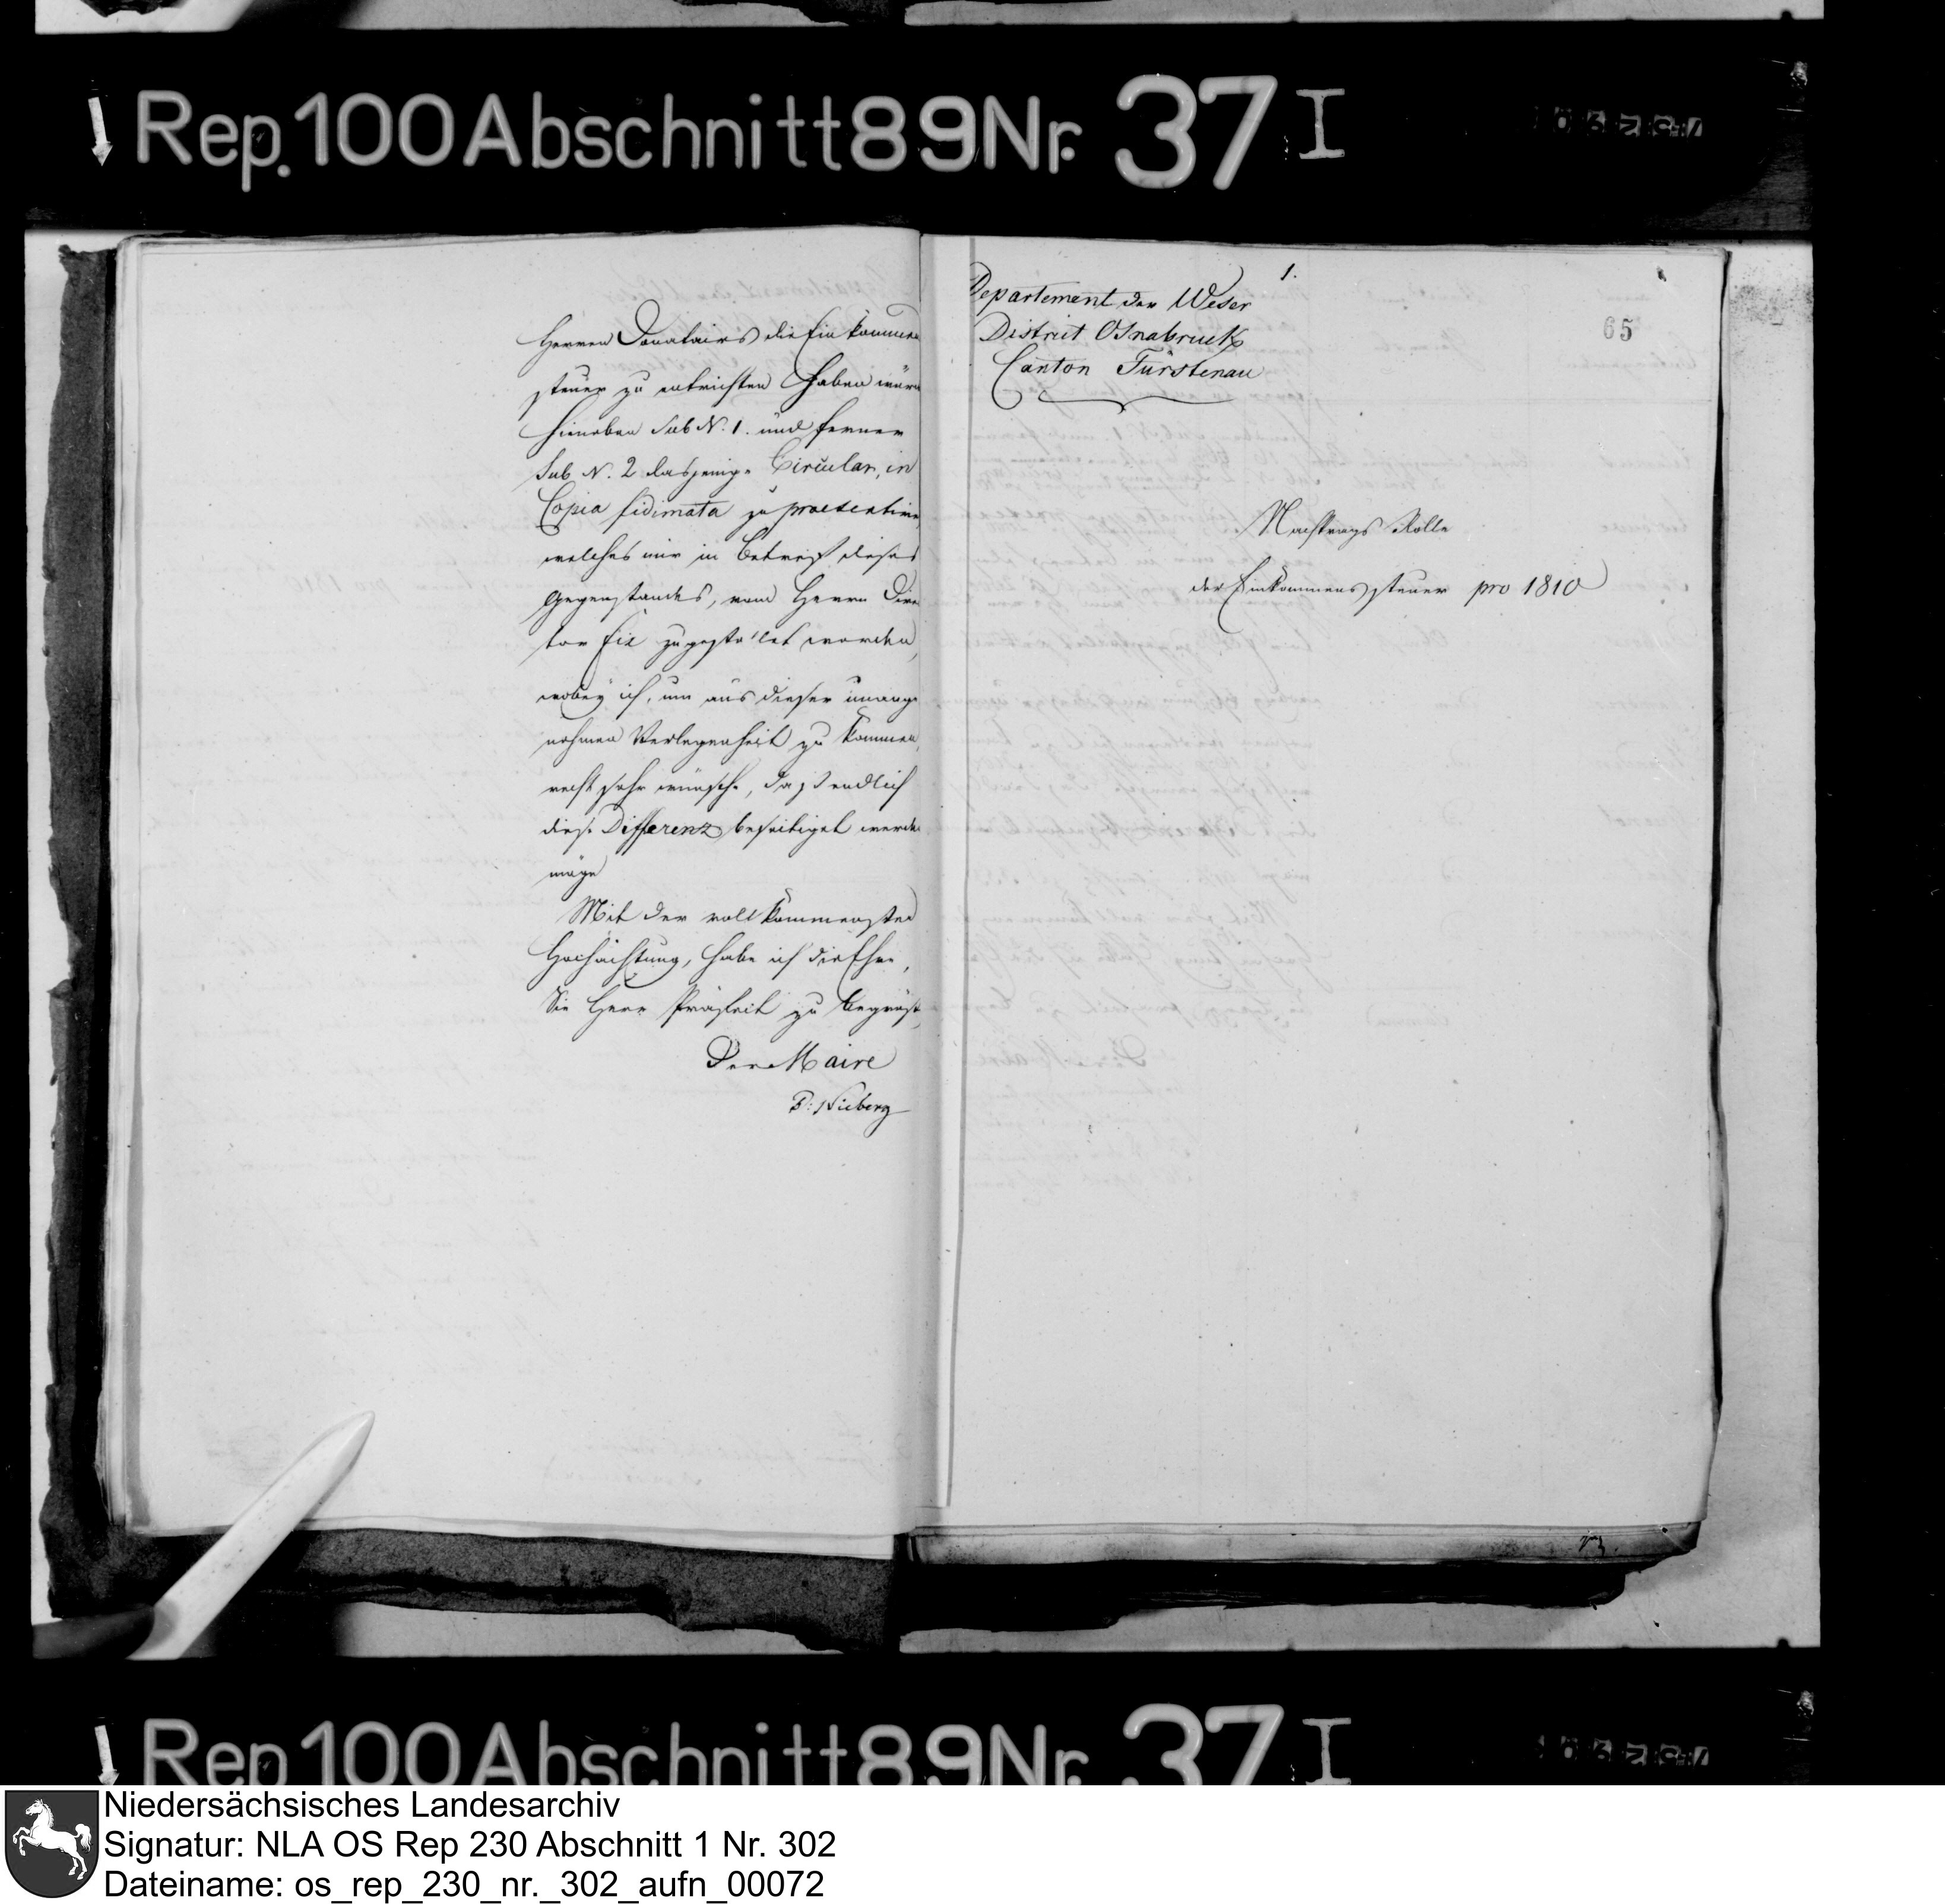 Rep. 100 Abschnitt 89 Nr. 37 I
Herren Donatairs die Einkommen
steuer zu entrichten haben
hieneben sub N. 1. und ferner
sub N. 2 dasjenige Circular, in
Copia fidimata zu praesentiren
welches mir in Betreff dieses
Gegenstandes, vom Herrn Direc
tor zugestellet worden,
wobey ich, um aus dieser unange
nehmen Verlegenheit zu kommen,
recht sehr wünsche, daß endlich
diese Differenz beseitiget werden
möge
Mit der vollkommensten
Hochachtung, habe ich die Ehre,
Sie Herr Präfect zu begrüßen,
Der Maire
Nieberg
1.
65
Departement der Weser
District Osnabruck
Canton Fürstenau
Nachtrags Rolle
der Einkommenssteuer pro 1810
Rep 100 Abschnitt 89 Nr. 37 I
Niedersächsisches Landesarchiv
Signatur: NLA OS Rep 230 Abschnitt 1 Nr. 302
Dateiname: os_rep_230_nr._302_aufn_00072